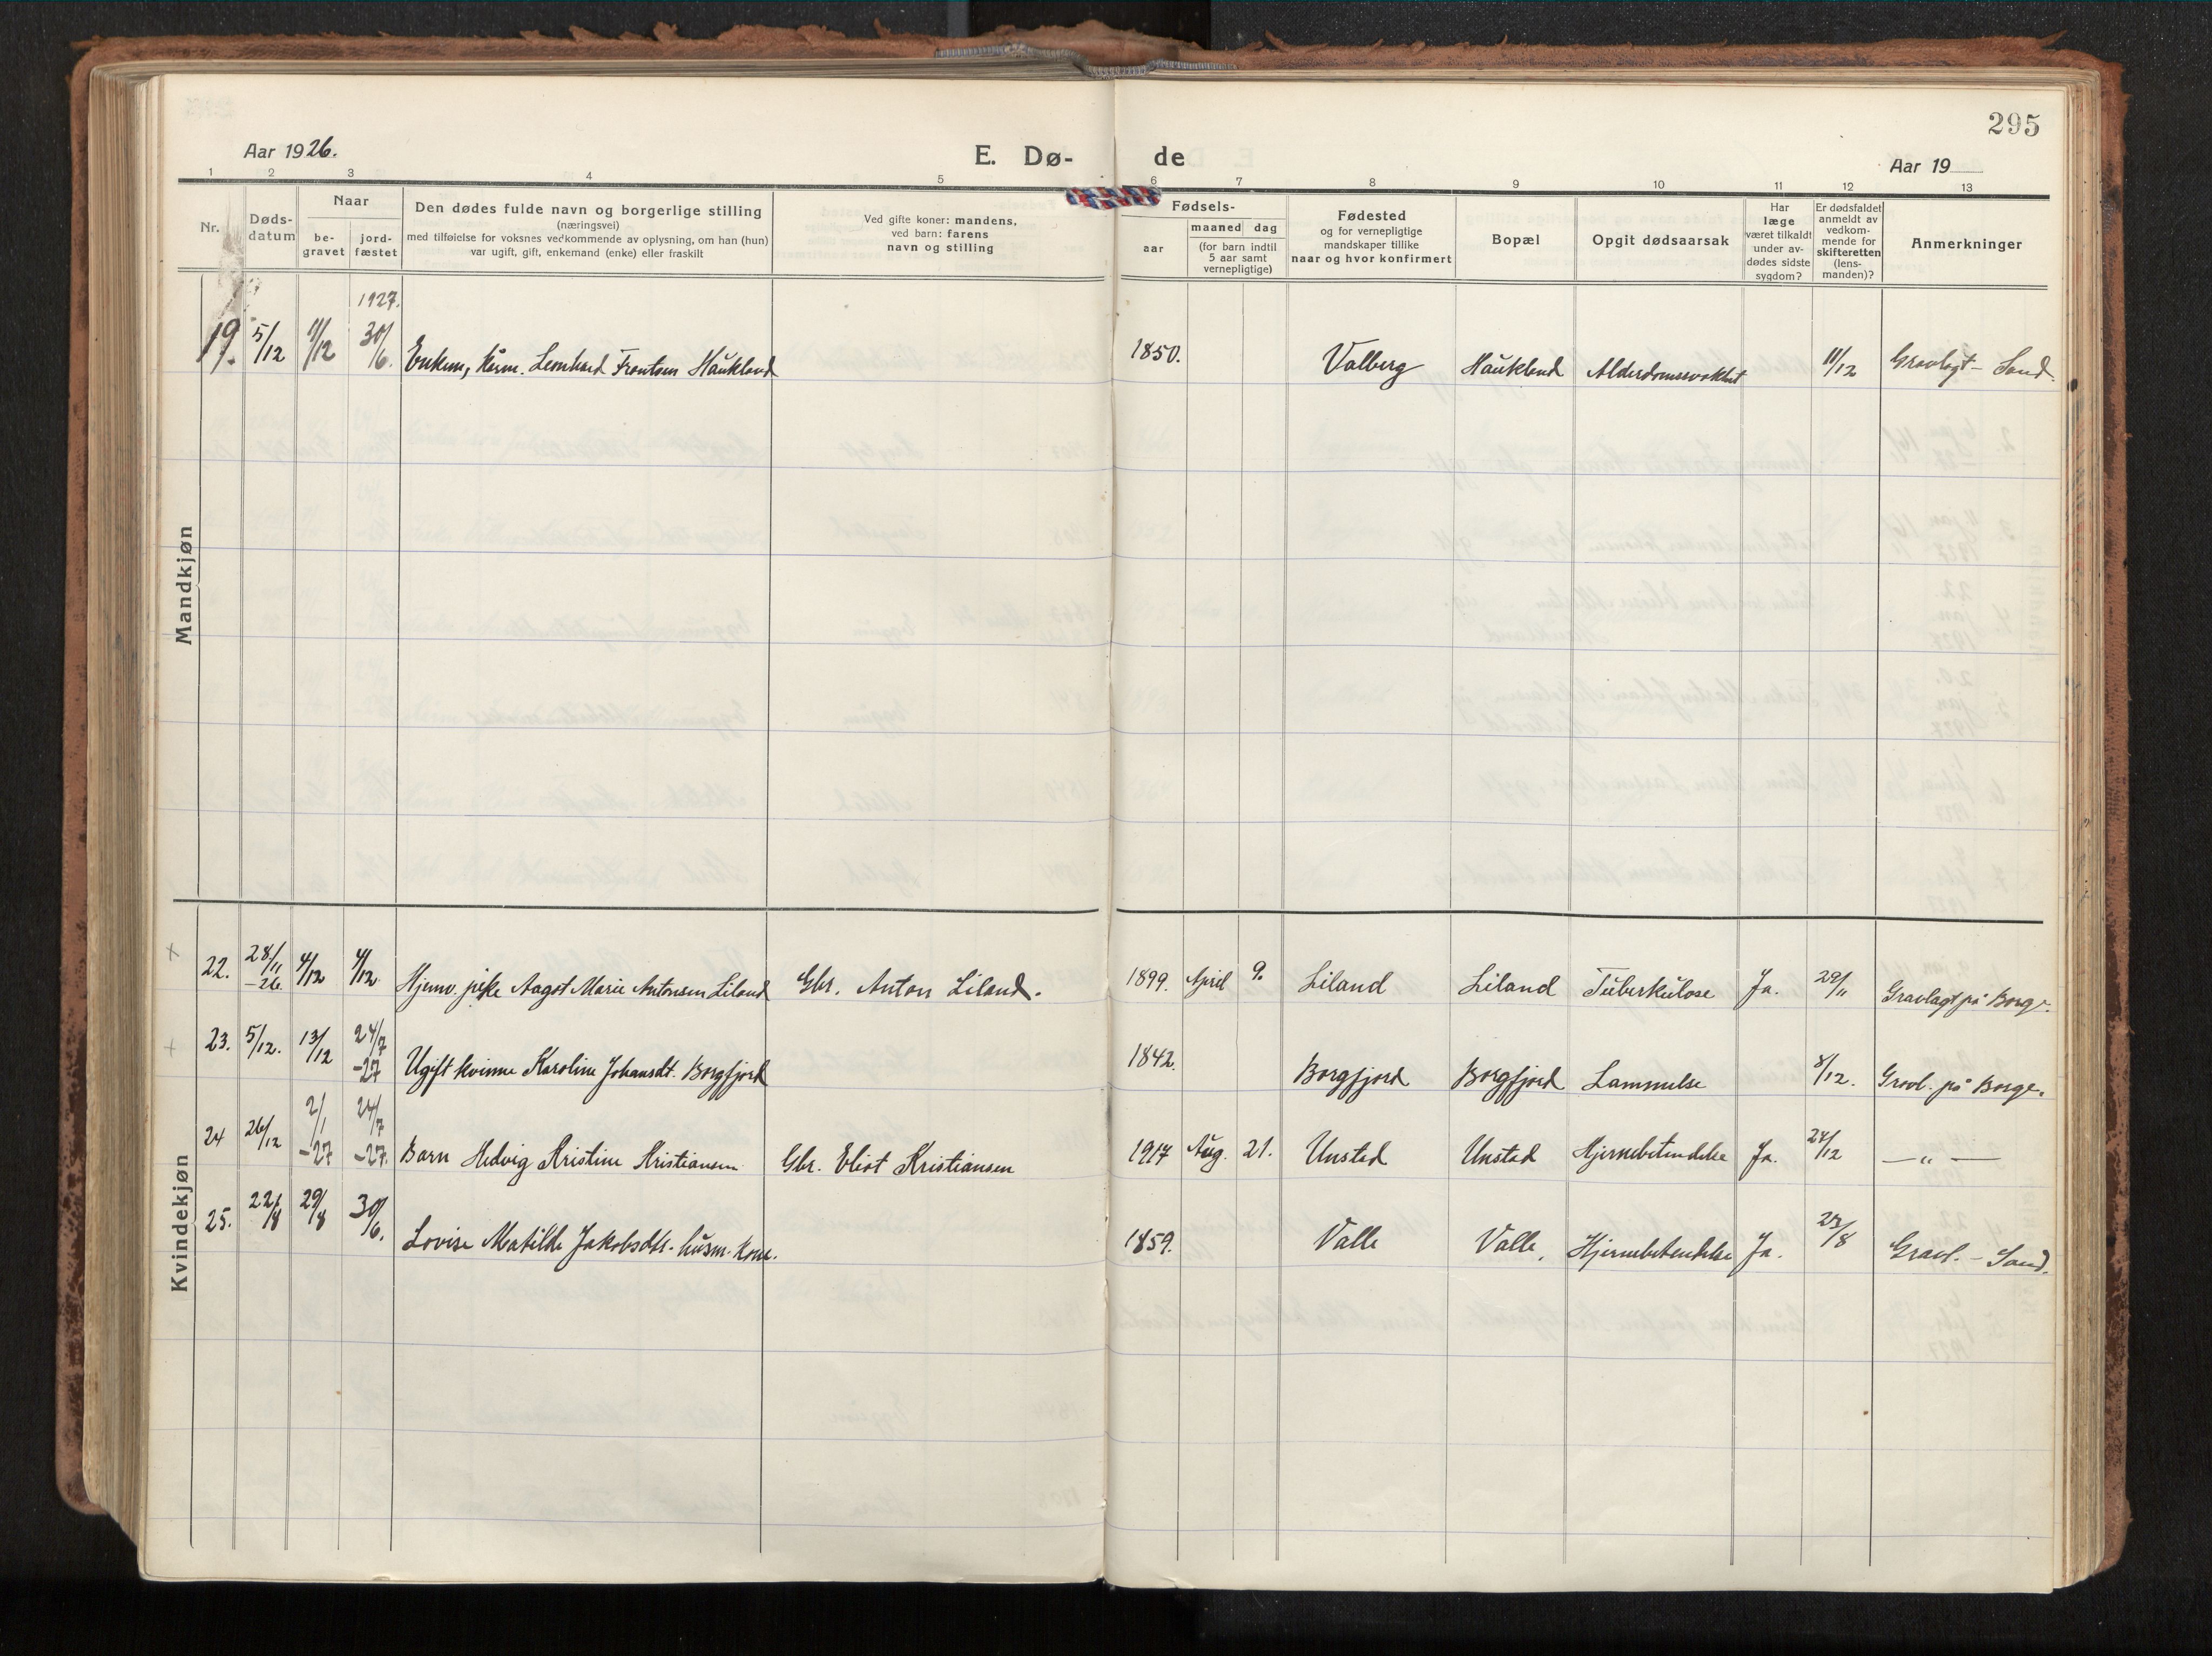 295
Aar 1926.
E. Dø-
de
Aar 19
1 2 3 4 5 6 7 8 9 10 11 12 13
Nr.
Døds-
datum
Naar
be-
gravet
jord-
fæstet
Den dødes fulde navn og borgerlige stilling
(næringsvei)
med tilføielse for voksnes vedkommende av oplysning, om han (hun)
var ugift, gift, enkemand (enke) eller fraskilt
Ved gifte koner: mandens,
ved barn: farens
navn og stilling
Fødsels-
aar
maaned dag
(for barn indtil
5 aar samt
vernepligtige)
Fødested
og for vernepligtige
mandskaper tillike
naar og hvor konfirmert
Bopæl
Opgit dødsaarsak
Har
læge
været tilkaldt
under av-
dødes sidste
sygdom?
Er dødsfaldet
anmeldt av
vedkom-
mende for
skifteretten
(lens-
manden)?
Anmerkninger
Mandkjøn
1927.
19. 5/12 11/12 30/6. Enkem, Leonhard Frantsen Haukland 1850. Valberg Haukland Alderdomssvakhet 11/12 Gravlagt - Sand.
Kvindekjøn
22. 28/11 -26. 4/12 4/12 Hjemv. pike Aagot Marie Antonsen Liland Gbr. Anton Liland. 1899. April 9. Liland Liland Tuberkulose Ja. 29/11 Gravlagt på Borge.
23. 5/12. 13/12 24/7 -27 Ugift kvinne Karoline Johansdt. Borgfjord 1842. Borgfjord Borgfjord Lammelse 8/12. Gravl. på Borge.
24 26/12 2/1 -27 24/7 -27. Barn Hedvig Kristine Kristiansen Gbr. Eliot Kristiansen 1917 Aug. 21. Unstad Unstad Hjernebetendelse Ja. 24/12 — „ —
25. 22/8 29/8 30/6. Lovise Matilde Jakobsdtr. husm. kone. 1859. Valle Valle. Hjernebetendelse Ja. 23/8 Gravl. - Sand.